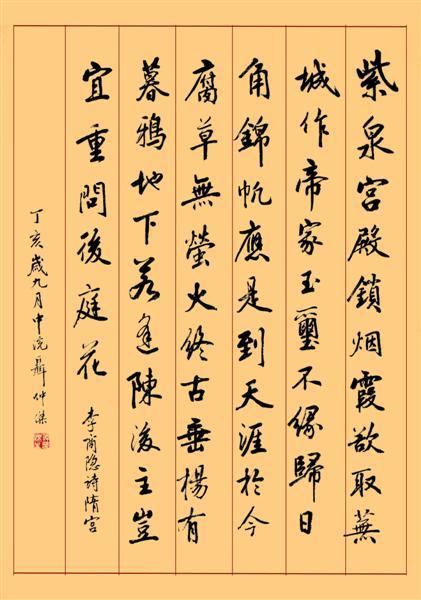 紫泉宮殿鎖烟霞欲取蕪
城作帝家玉璽不缘歸日
角錦帆應是到天涯於今
腐草無螢火終古垂楊有
暮鴉地下若逢陳後主豈
宜重問後庭花
李商隐詩隋宫
丁亥歲九月中浣聶仲傑